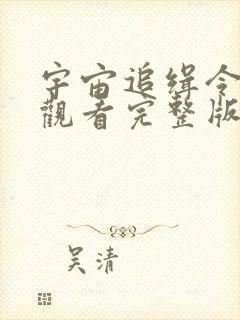 宇宙追缉令
觀看完整版
吴清